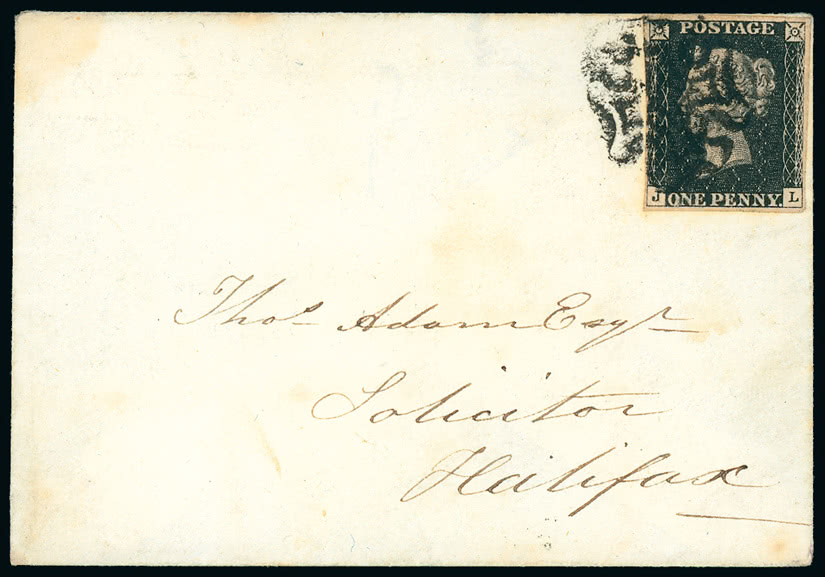 POSTAGE
J ONE PENNY L
Thos Adam Esqr
Solicitor
Halifax